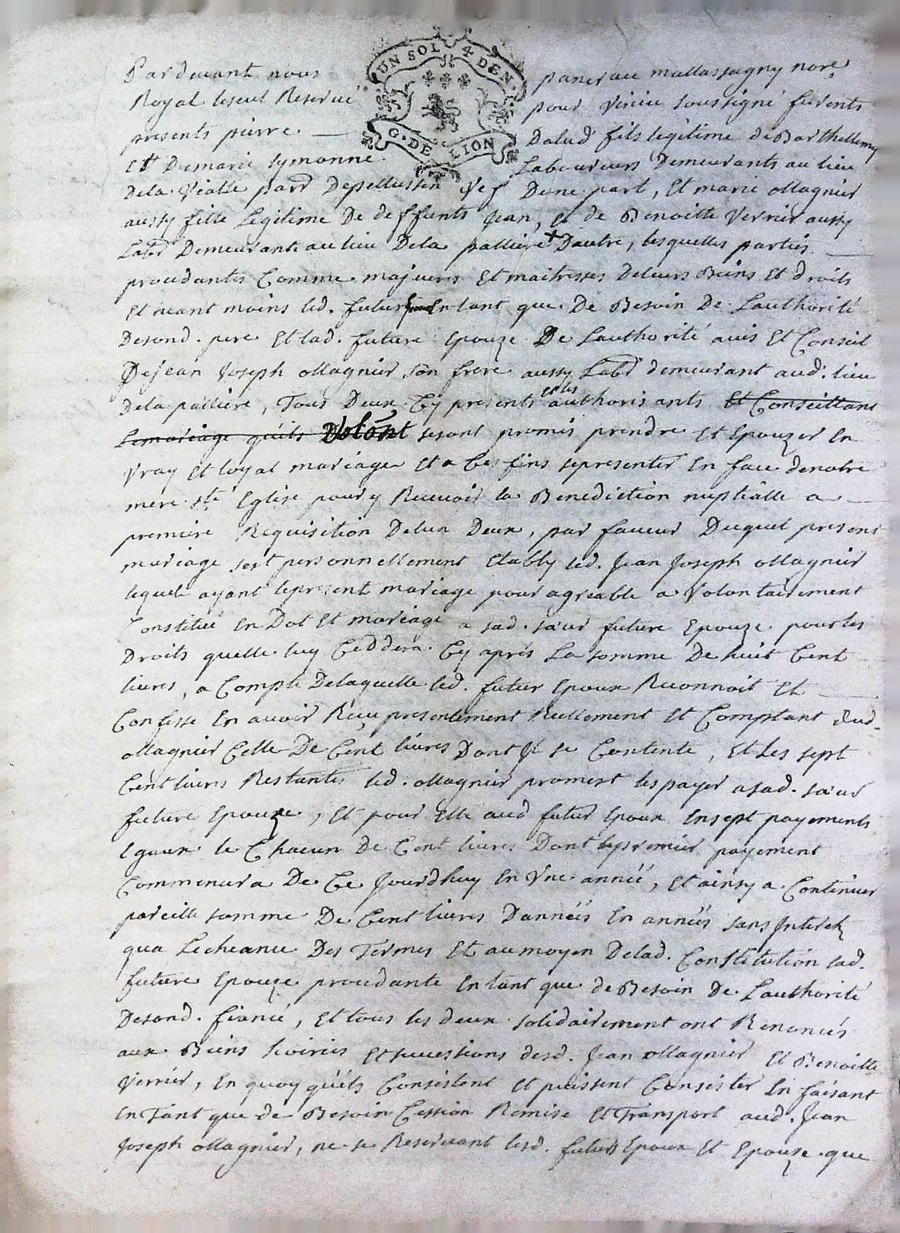 UN SOL 4 DEN.
G. DE LION
Pardevant nous pancrace mallassagny nore
Royal le seul Reservé pour soussigné furents
presents pierre Dalud fils legitime de Barthellemy
Et De marie symonne Laboureurs Demeurants au lieu
Dela Vialle parr Depellussin Dune part, Et marie ollagnier
aussy fille Legitime De deffunts Jean, et de Benoitte Vernier aussy
Labr Demeurante au lieu Dela pallière Dautre, lesquelles parties
procedantes Comme majeures Et maitresses deleurs Biens Et droits
Et neant moins led. futur En tant que De Besoin De Lauthorité
Desond. pere Et lad. future Epouze De Lauthorité avis Et Conseil
De jean Joseph ollagnier son frere aussy Labr demeurant aud. lieu
dela pallière, Tous Deux Cy presents et les authorisants Et Conseillant
Lemariage quils Volont sesont promis prendre Et Epouzer En
Vray Et loyal mariage Et a Ces fins sepresenter En face denotre
mere ste Eglise poury Recevoir la Benediction nuptialle a
premiere Requisition Delun Deux, par faveur Duquel present
mariage sest personnellement Etably led. Jean Joseph ollagnier
lequel ayant lepresent mariage pour agreable a Volontairement
Constitué En Dot Et mariage a sad. sœur future Epouze pour les
Droits quelle luy Ceddera Cy après La somme De huit Cent
livres, a Compte Delaquelle led. futur Epoux Reconnoit Et
Confesse En avoir Reçu presentement Reellement Et Comptant dud.
ollagnier Celle De Cent livres Dont Il se Contente, Et Les sept
Cent livres Restantes led. ollagnier promest les payer a sad. sœur
future Epouze, Et pour Elle aud futur Epoux En sept payements
Egaux le Chacun De Cent livres Dont lepremier payement
Commencera De Ce Jourdhuy En Vne année, Et ainsy a Continuer
pareille somme De Cent livres Dannées En années sans Interets
qua Lecheance Des Termes Et au moyen Delad. Constitution lad.
future Epouze procedante En tant que de Besoin De Lauthorité
Desond. fiancé, Et tous les deux solidairement ont Renoncés
aux Biens hoiries Et successions desd. Jean ollagnier Et Benoitte
Vernier, En quoy quils Consistent Et puissent Consister En faisant
En Tant que de Besoin Cession Remise Et Transport aud. Jean
Joseph ollagnier, ne se Reservant lesd. futurs Epoux Et Epouze que